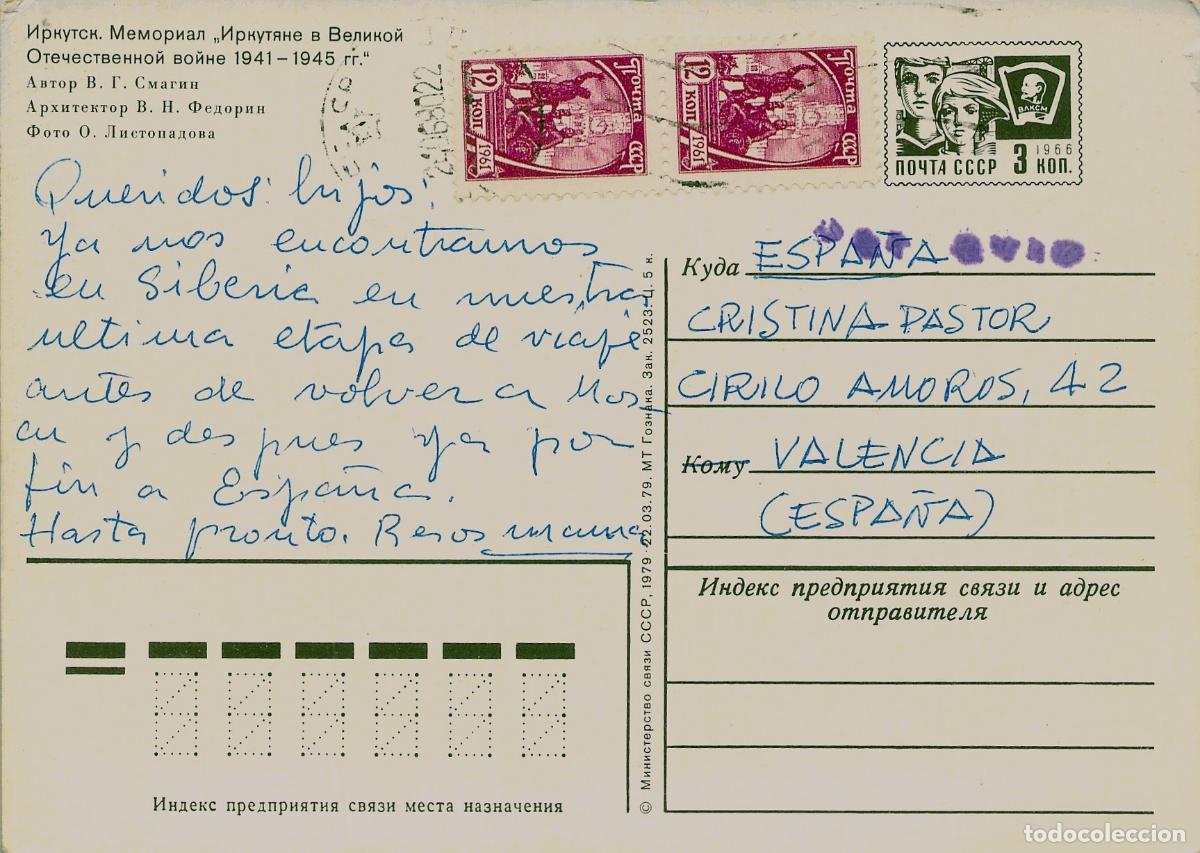 Иркутск. Мемориал „Иркутяне в Великой
Отечественной войне 1941–1945 гг.“
Автор В. Г. Смагин
Архитектор В. Н. Федорин
Фото О. Листопадова
12 коп 1961 Почта СССР
12 коп 1961 Почта СССР
ВЛКСМ
1966
ПОЧТА СССР 3 КОП.
Queridos hijos:
ya nos encontramos
en Siberia en nuestra
ultima etapa de viaje
antes de volver a Mos_
cu y despues ya por
fin a España.
Hasta pronto. Besos mama
Куда ESPAÑA
CRISTINA PASTOR
CIRILO AMOROS, 42
Кому VALENCIA
(ESPAÑA)
Индекс предприятия связи и адрес
отправителя
© Министерство связи СССР, 1979 · 22.03.79. МТ Гознака. Зак. 2523. Ц. 5 к.
Индекс предприятия связи места назначения
todocoleccion